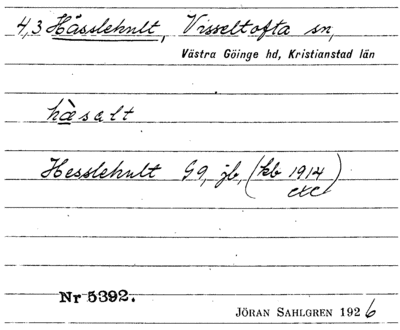 4,3 Hässlehult, Visseltofta sn,
Västra Göinge hd, Kristianstad län
hæ̀salt
Hesslehult G9, jb, (kb 1914)
exc
Nr 5392.
JÖRAN SAHLGREN 1926